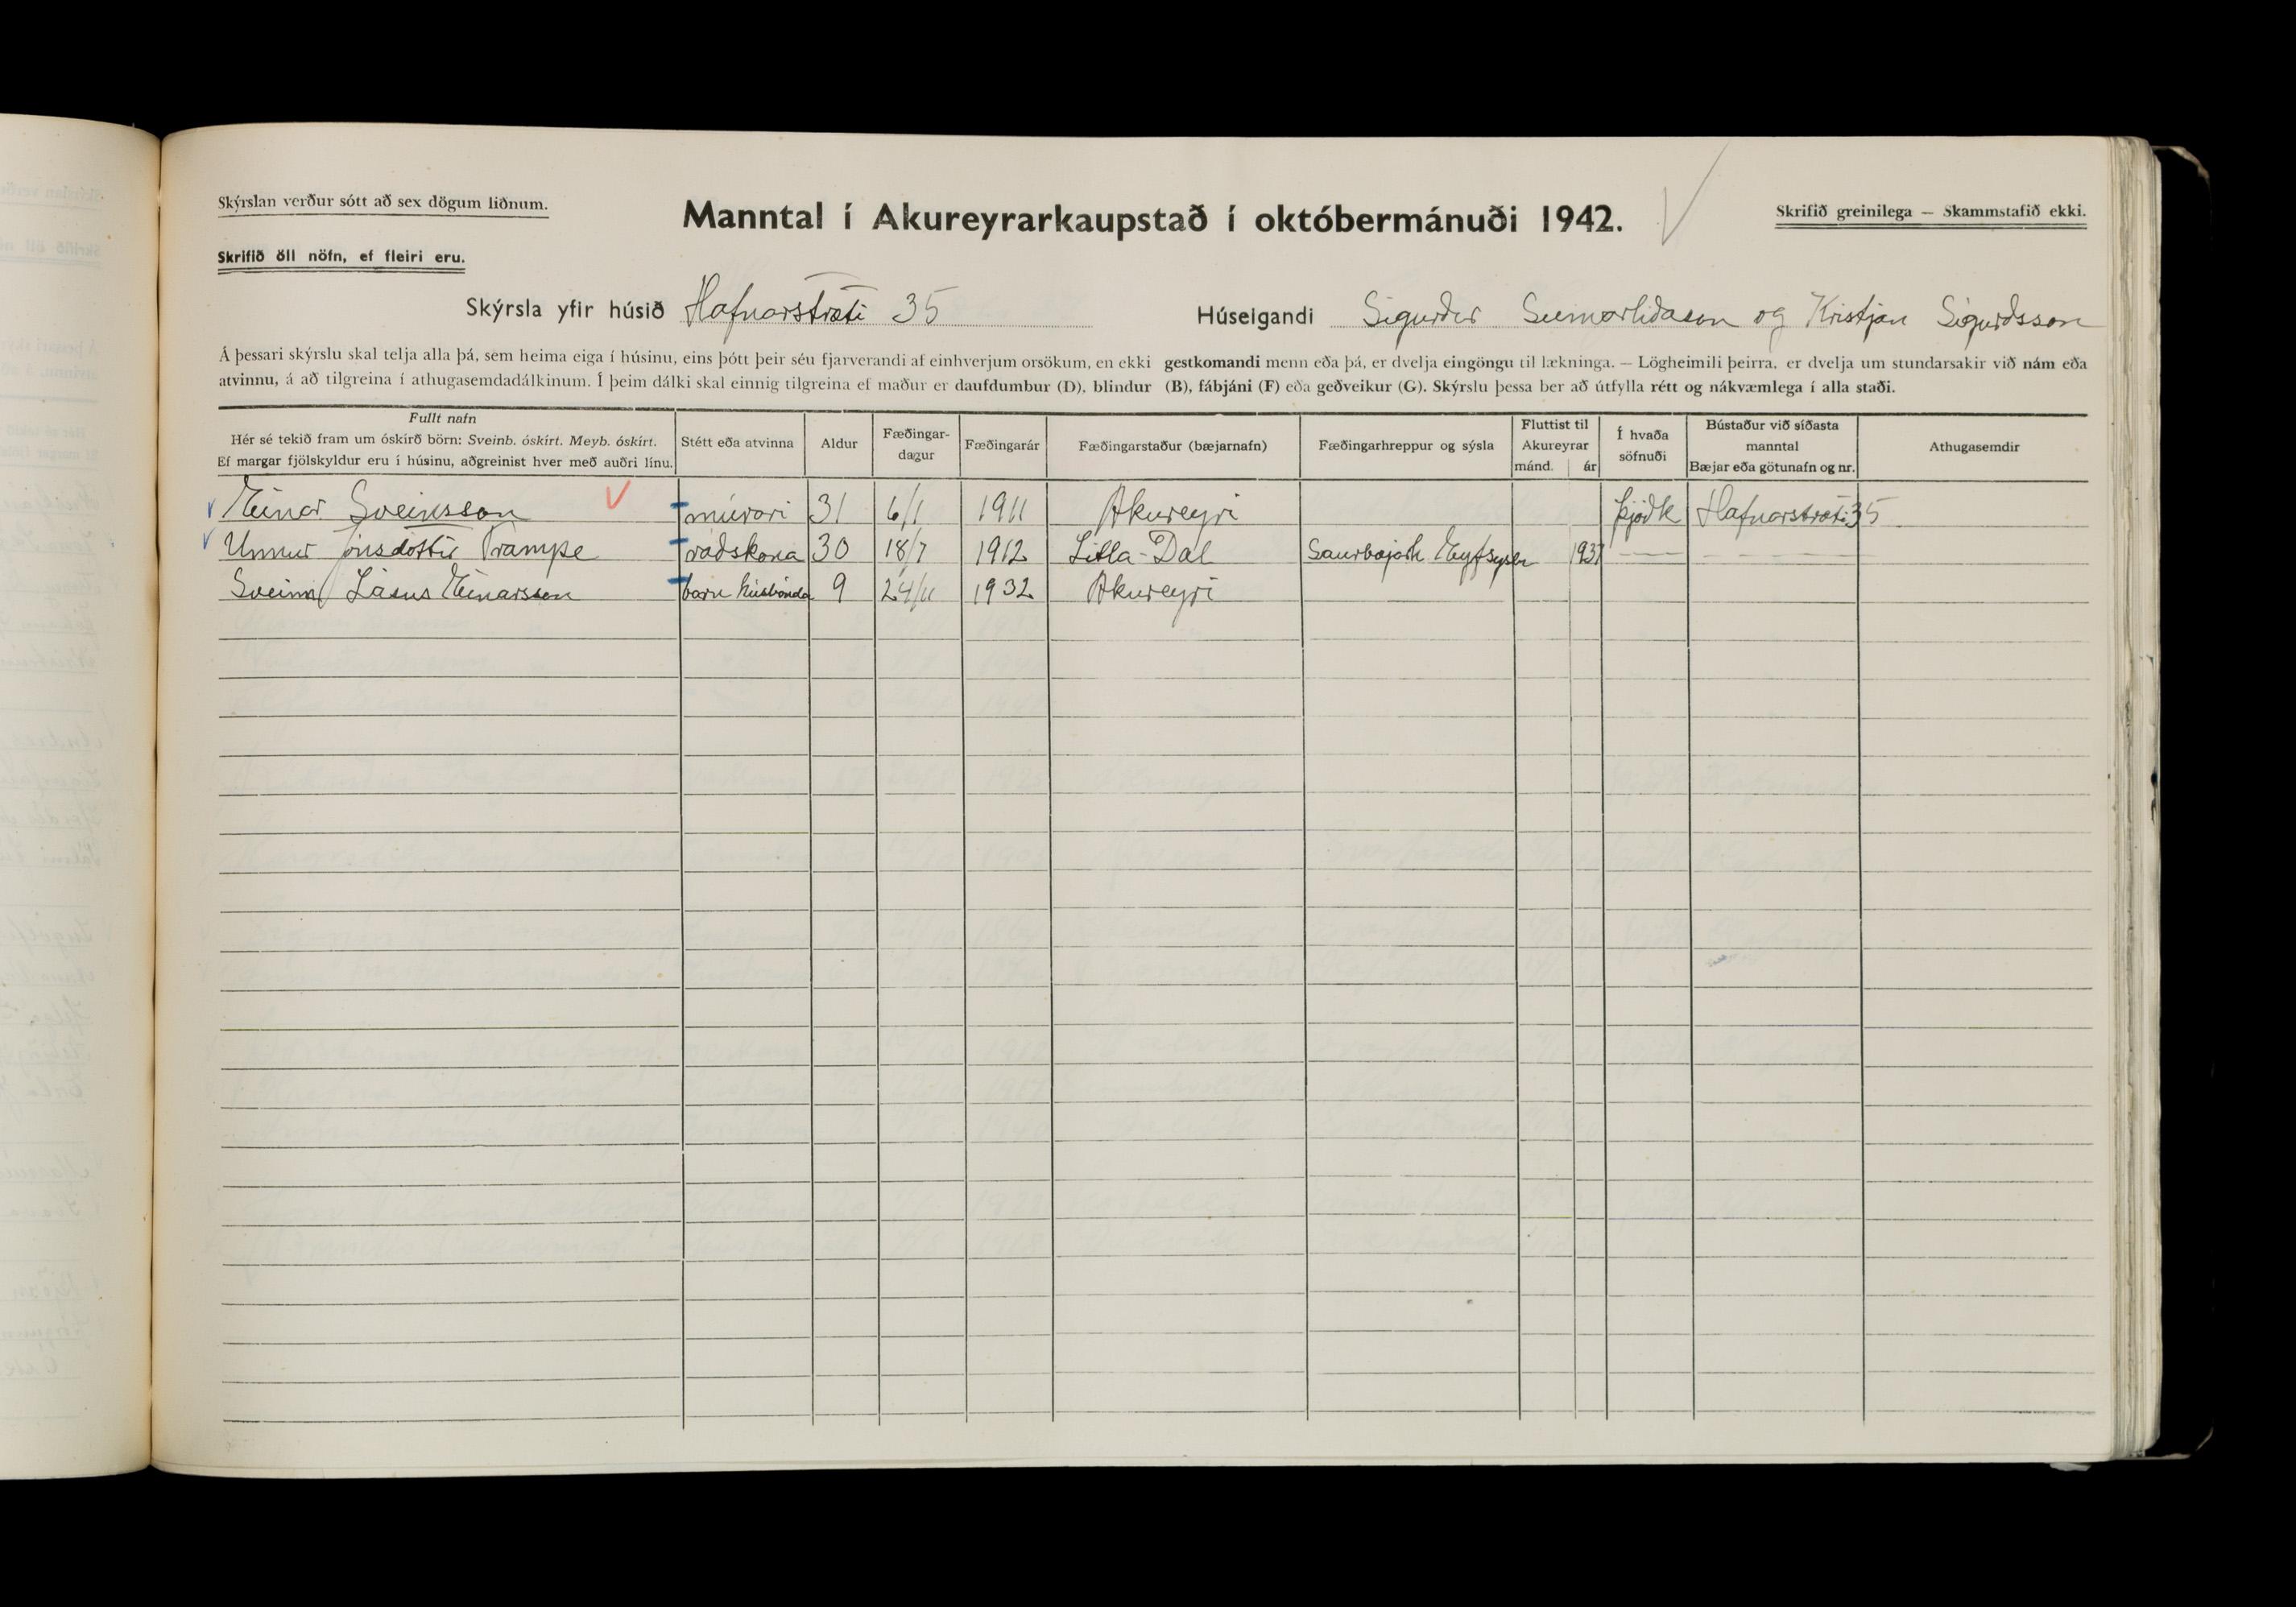 Skýrslan verður sótt að sex dögum liðnum.
Manntal í Akureyrarkaupstað í októbermánuði 1942.
Skrifið greinilega — Skammstafið ekki.
Skrifið öll nöfn, ef fleiri eru.
Skýrsla yfir húsið Hafnarstræti 35 Húseigandi Sigurður Sumarliðason og Kristján Sigurðsson
Á þessari skýrslu skal telja alla þá, sem heima eiga í húsinu, eins þótt þeir séu fjarverandi af einhverjum orsökum, en ekki gestkomandi menn eða þá, er dvelja eingöngu til lækninga. — Lögheimili þeirra, er dvelja um stundarsakir við nám eða
atvinnu, á að tilgreina í athugasemdadálkinum. Í þeim dálki skal einnig tilgreina ef maður er daufdumbur (D), blindur (B), fábjáni (F) eða geðveikur (G). Skýrslu þessa ber að útfylla rétt og nákvæmlega í alla staði.
Fullt nafn
Hér sé tekið fram um óskírð börn: Sveinb. óskírt. Meyb. óskírt.
Ef margar fjölskyldur eru í húsinu, aðgreinist hver með auðri línu.
Stétt eða atvinna
Aldur
Fæðingar-
dagur
Fæðingarár
Fæðingarstaður (bæjarnafn)
Fæðingarhreppur og sýsla
Fluttist til
Akureyrar
mánd. ár
Í hvaða
söfnuði
Bústaður við síðasta
manntal
Bæjar eða götunafn og nr.
Athugasemdir
Einar Sveinsson múrari 31 6/1 1911 Akureyri Þjóðk Hafnarstræti 35
Unnur Jónsdóttir Trampe ráðskona 30 18/7 1912 Litla-Dal Saurbæjarh Eyjfsýslu 1937 — — — — —
Sveinn Lárus Einarsson barn húsbónda 9 24/11 1932 Akureyri